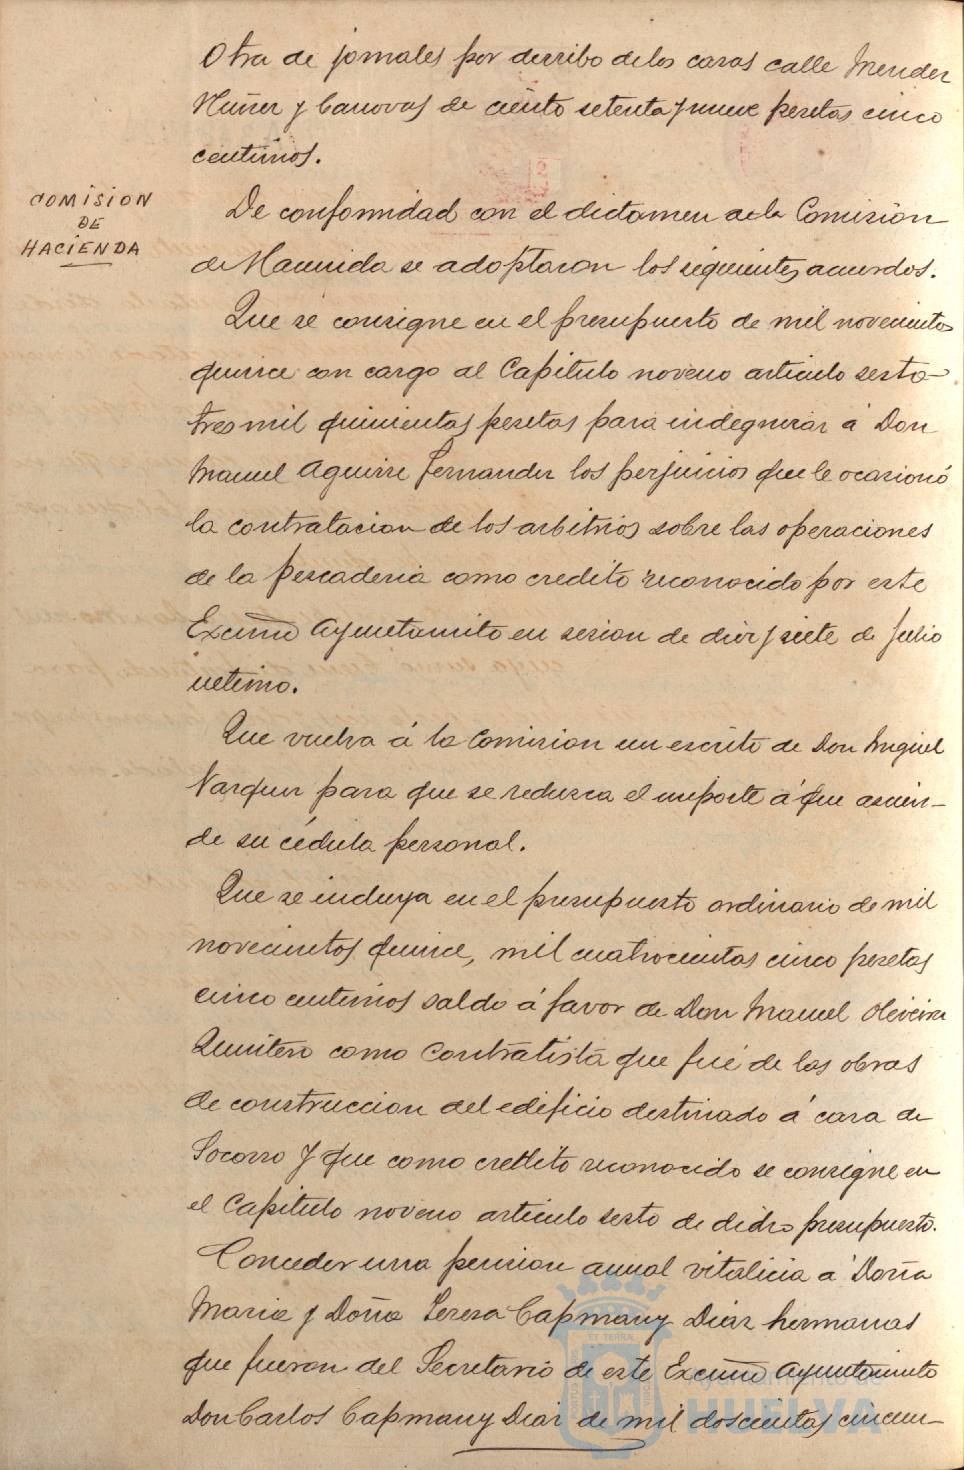 Otra de jornales por derribo de los casas calle Mendez
Nuñez y Canovas de ciento setenta y nueve pesetas cinco
centimos.
COMISION
DE
HACIENDA
De conformidad con el dictamen de la Comision
de Hacienda se adoptaron los siguientes acuerdos.
Que se consigne en el presupuesto de mil novecientos
quince con cargo al Capitulo noveno articulo sesto
tres mil quinientas pesetas para indegnizar á Don
Manuel Aguirre Fernandez los perjuicios que le ocasionó
la contratacion de los arbitrios sobre las operaciones
de la pescaderia como credito reconocido por este
Excmo Ayuntamito en sesion de diez y siete de Julio
ultimo.
Que vuelva á la Comision un escrito de Don Miguel
para que se reduzca el importe á que ascien-
de su cédula personal.
Que se incluya en el presupuesto ordinario de mil
novecientos quince, mil cuatrocientas cinco pesetas
cinco centimos saldo á favor de Don Manuel Oliveira
Quintero como Contratista que fué de las obras
de construccion del edificio destinado á casa de
Socorro y que como credito reconocido se consigne en
el Capitulo noveno articulo sesto de dicho presupuesto.
Conceder una pension anual vitalicia á Doña
Maria y Doña Teresa Capmany Diaz hermanas
que fueron del Secretario de este Excmo Ayuntamiento
Don Carlos Capmany Diaz de mil doscientas cincuen-
Ayuntamiento de
HUELVA